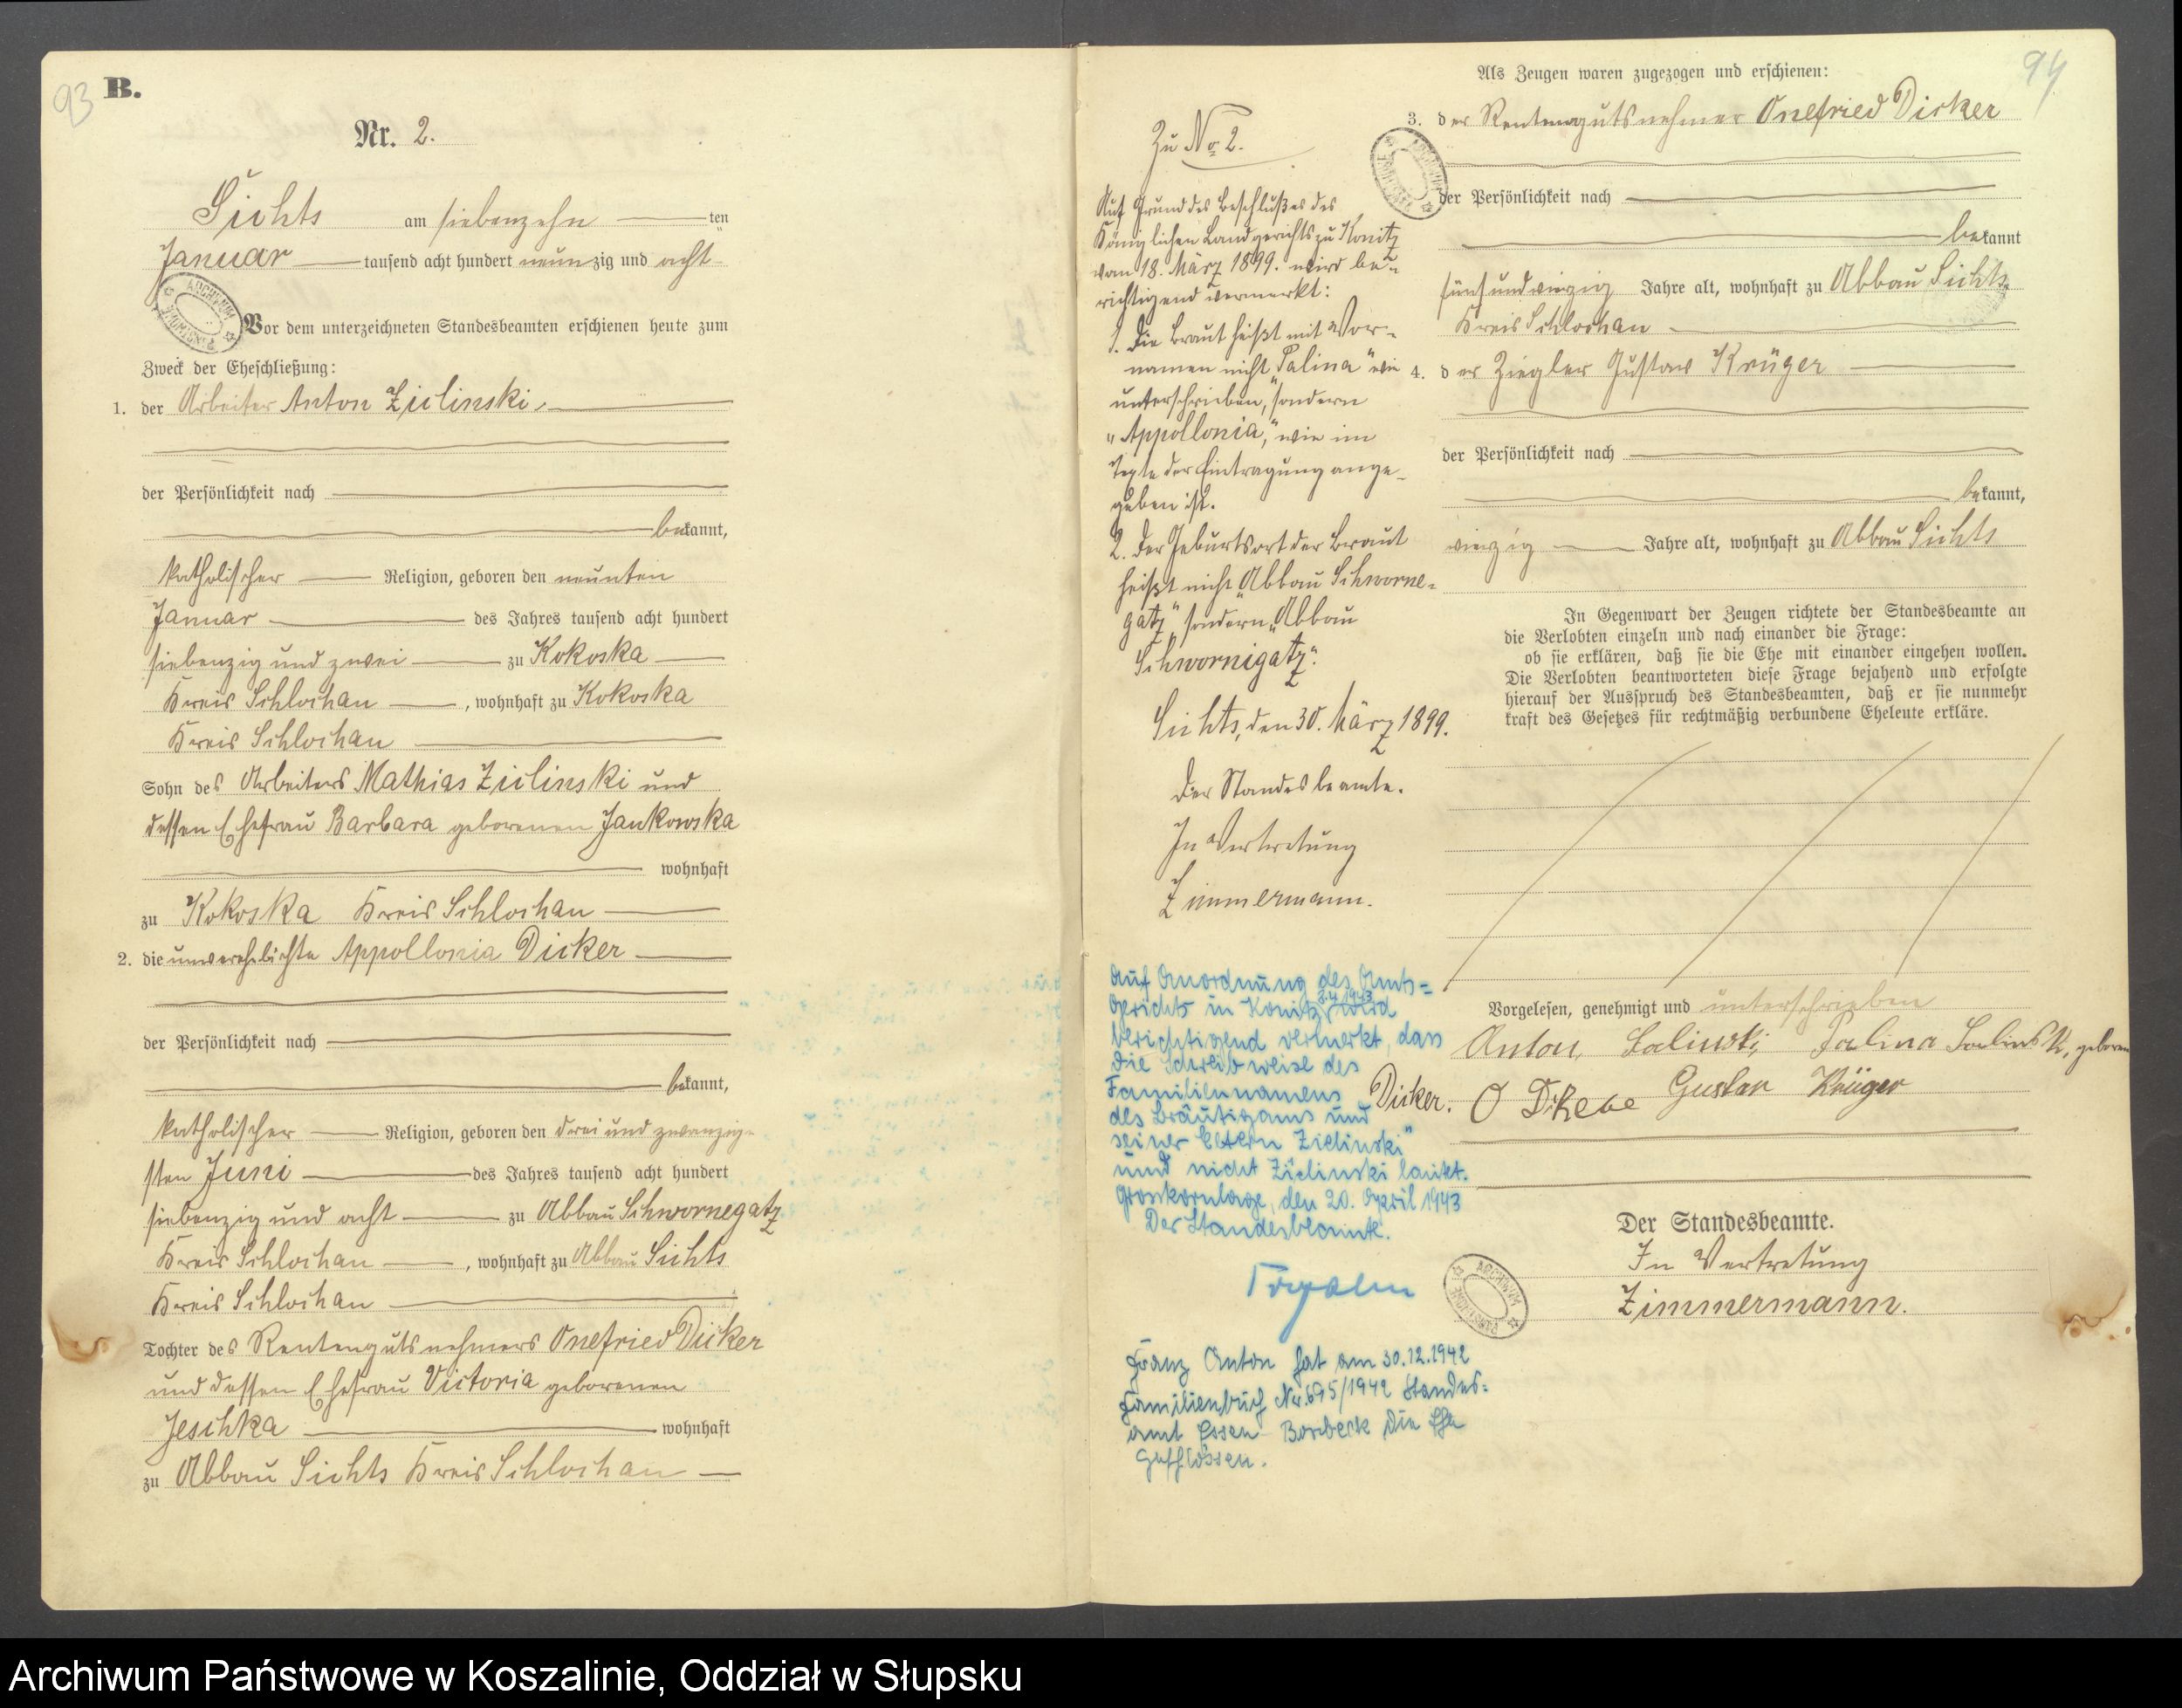 93
B.
Nr. 2.
Sichts am siebenzehn ten
Januar tausend acht hundert neunzig und acht
Vor dem unterzeichneten Standesbeamten erschienen heute zum
Zweck der Eheschließung:
1. der Arbeiter Anton Zielinski,
der Persönlichkeit nach
bekannt,
katholischer Religion, geboren den neunten
Januar des Jahres tausend acht hundert
siebenzig und zwei zu Kokoska
Kreis Schlochau, wohnhaft zu Kokoska
Kreis Schlochau
Sohn des Arbeiters Mathias Zielinski und
dessen Ehefrau Barbara geborenen Jankowska
wohnhaft
zu Kokoska Kreis Schlochau
2. die unverehelichte Appollonia Dicker
der Persönlichkeit nach
bekannt,
katholischer Religion, geboren den drei und zwanzig-
sten Juni des Jahres tausend acht hundert
siebenzig und acht zu Abbau Schwornegatz
Kreis Schlochau, wohnhaft zu Abbau Sichts
Kreis Schlochau
Tochter des Rentengutsnehmers Onefried Dicker
und dessen Ehefrau Victoria geborenen
Jeschka wohnhaft
zu Abbau Sichts Kreis Schlochau
Zu No 2.
Auf Grund des Beschlußes des
Königlichen Landgerichts zu Konitz
vom 18. März 1899. wird be-
richtigend vermerkt:
1. Die Braut heißt mit Vor-
namen nicht „Palina" wie
unterschrieben, sondern
„Appollonia," wie im
Texte der Eintragung ange-
geben ist.
2. Der Geburtsort der Braut
heißt nicht „Abbau Schworne-
gatz" sondern „Abbau
Schwornigatz".
Sichts, den 30. März 1899.
Der Standesbeamte.
In Vertretung
Zimmermann.
Auf Anordnung des Amts=
gerichts in Konitz v. 3.4.1943 wird
berichtigend vermerkt, dass
die Schreibweise des
Familiennamens
des Bräutigams und
seiner Eltern Zielinski"
und nicht Zielinski lautet.
den 20. April 1943
Der Standesbeamte.
Franz Anton hat am 30.12.1942
Familienbuch Nr. 695/1942 Standes=
amt Essen Borbeck die Ehe
geschlossen.
94
Als Zeugen waren zugezogen und erschienen:
3. der Rentengutsnehmer Onefried Dicker
der Persönlichkeit nach
bekannt
fünfundvierzig Jahre alt, wohnhaft zu Abbau Sichts
Kreis Schlochau
4. der Ziegler Gustav Krüger
der Persönlichkeit nach
bekannt,
vierzig Jahre alt, wohnhaft zu Abbau Sichts
In Gegenwart der Zeugen richtete der Standesbeamte an
die Verlobten einzeln und nach einander die Frage:
ob sie erklären, daß sie die Ehe mit einander eingehen wollen.
Die Verlobten beantworteten diese Frage bejahend und erfolgte
hierauf der Ausspruch des Standesbeamten, daß er sie nunmehr
kraft des Gesetzes für rechtmäßig verbundene Eheleute erkläre.
Vorgelesen, genehmigt und unterschrieben
Anton Salinski Palina Salinski, geboren
Dicker. O Gustav Krüger
Der Standesbeamte.
In Vertretung
Zimmermann.
Archiwum Państwowe w Koszalinie, Oddział w Słupsku